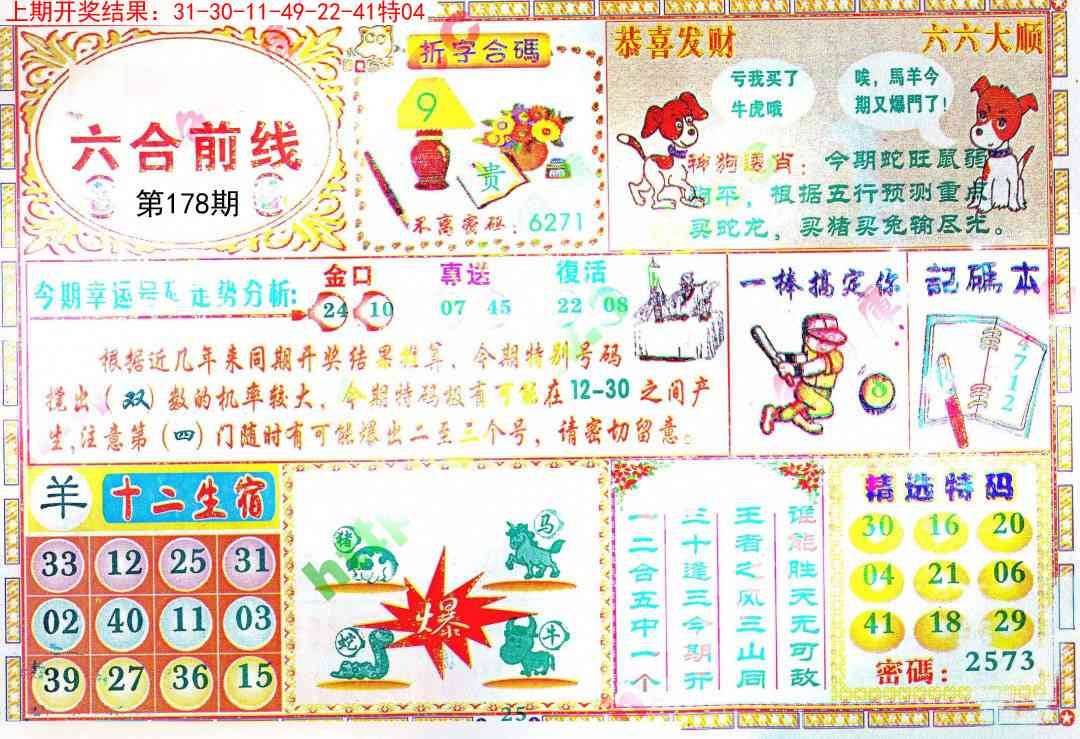 上期开奖结果：31-30-11-49-22-41特04
六合前线
第178期
折字合碼
9
贵
不离密码：6271
恭喜发财
六六大顺
亏我买了
牛虎哦
唉，馬羊今
期又爆門了!
神狗透肖：今期蛇旺鼠弱
狗平，根据五行预测重点
买蛇龙，买猪买兔输尽光。
今期幸运号码走势分析:
金口
24 10
真送
07 45
復活
22 08
根据近几年来同期开奖结果推算，今期特别号码
搅出(双)数的机率较大，今期特码极有可能在12-30之间产
生,注意第(四)门随时有可能爆出二至三个号，请密切留意。
一棒搞定你
8
記碼本
4712
羊
十二生宿
33 12 25 31
02 40 11 03
39 27 36 15
猪
马
爆
蛇
牛
谁能胜天无可敌
王者之风三山同
三十逢三今期开
一二合五中一个
精选特码
30 16 20
04 21 06
41 18 29
密碼：2573
25